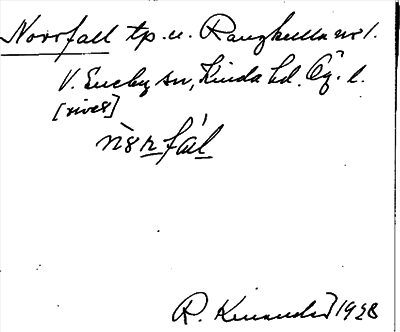 Norrfall tp. u. Rangkulla nr 1.
V. Eneby sn, Kinda hd. Ög. l.
[rives]
R. Kinander 1928